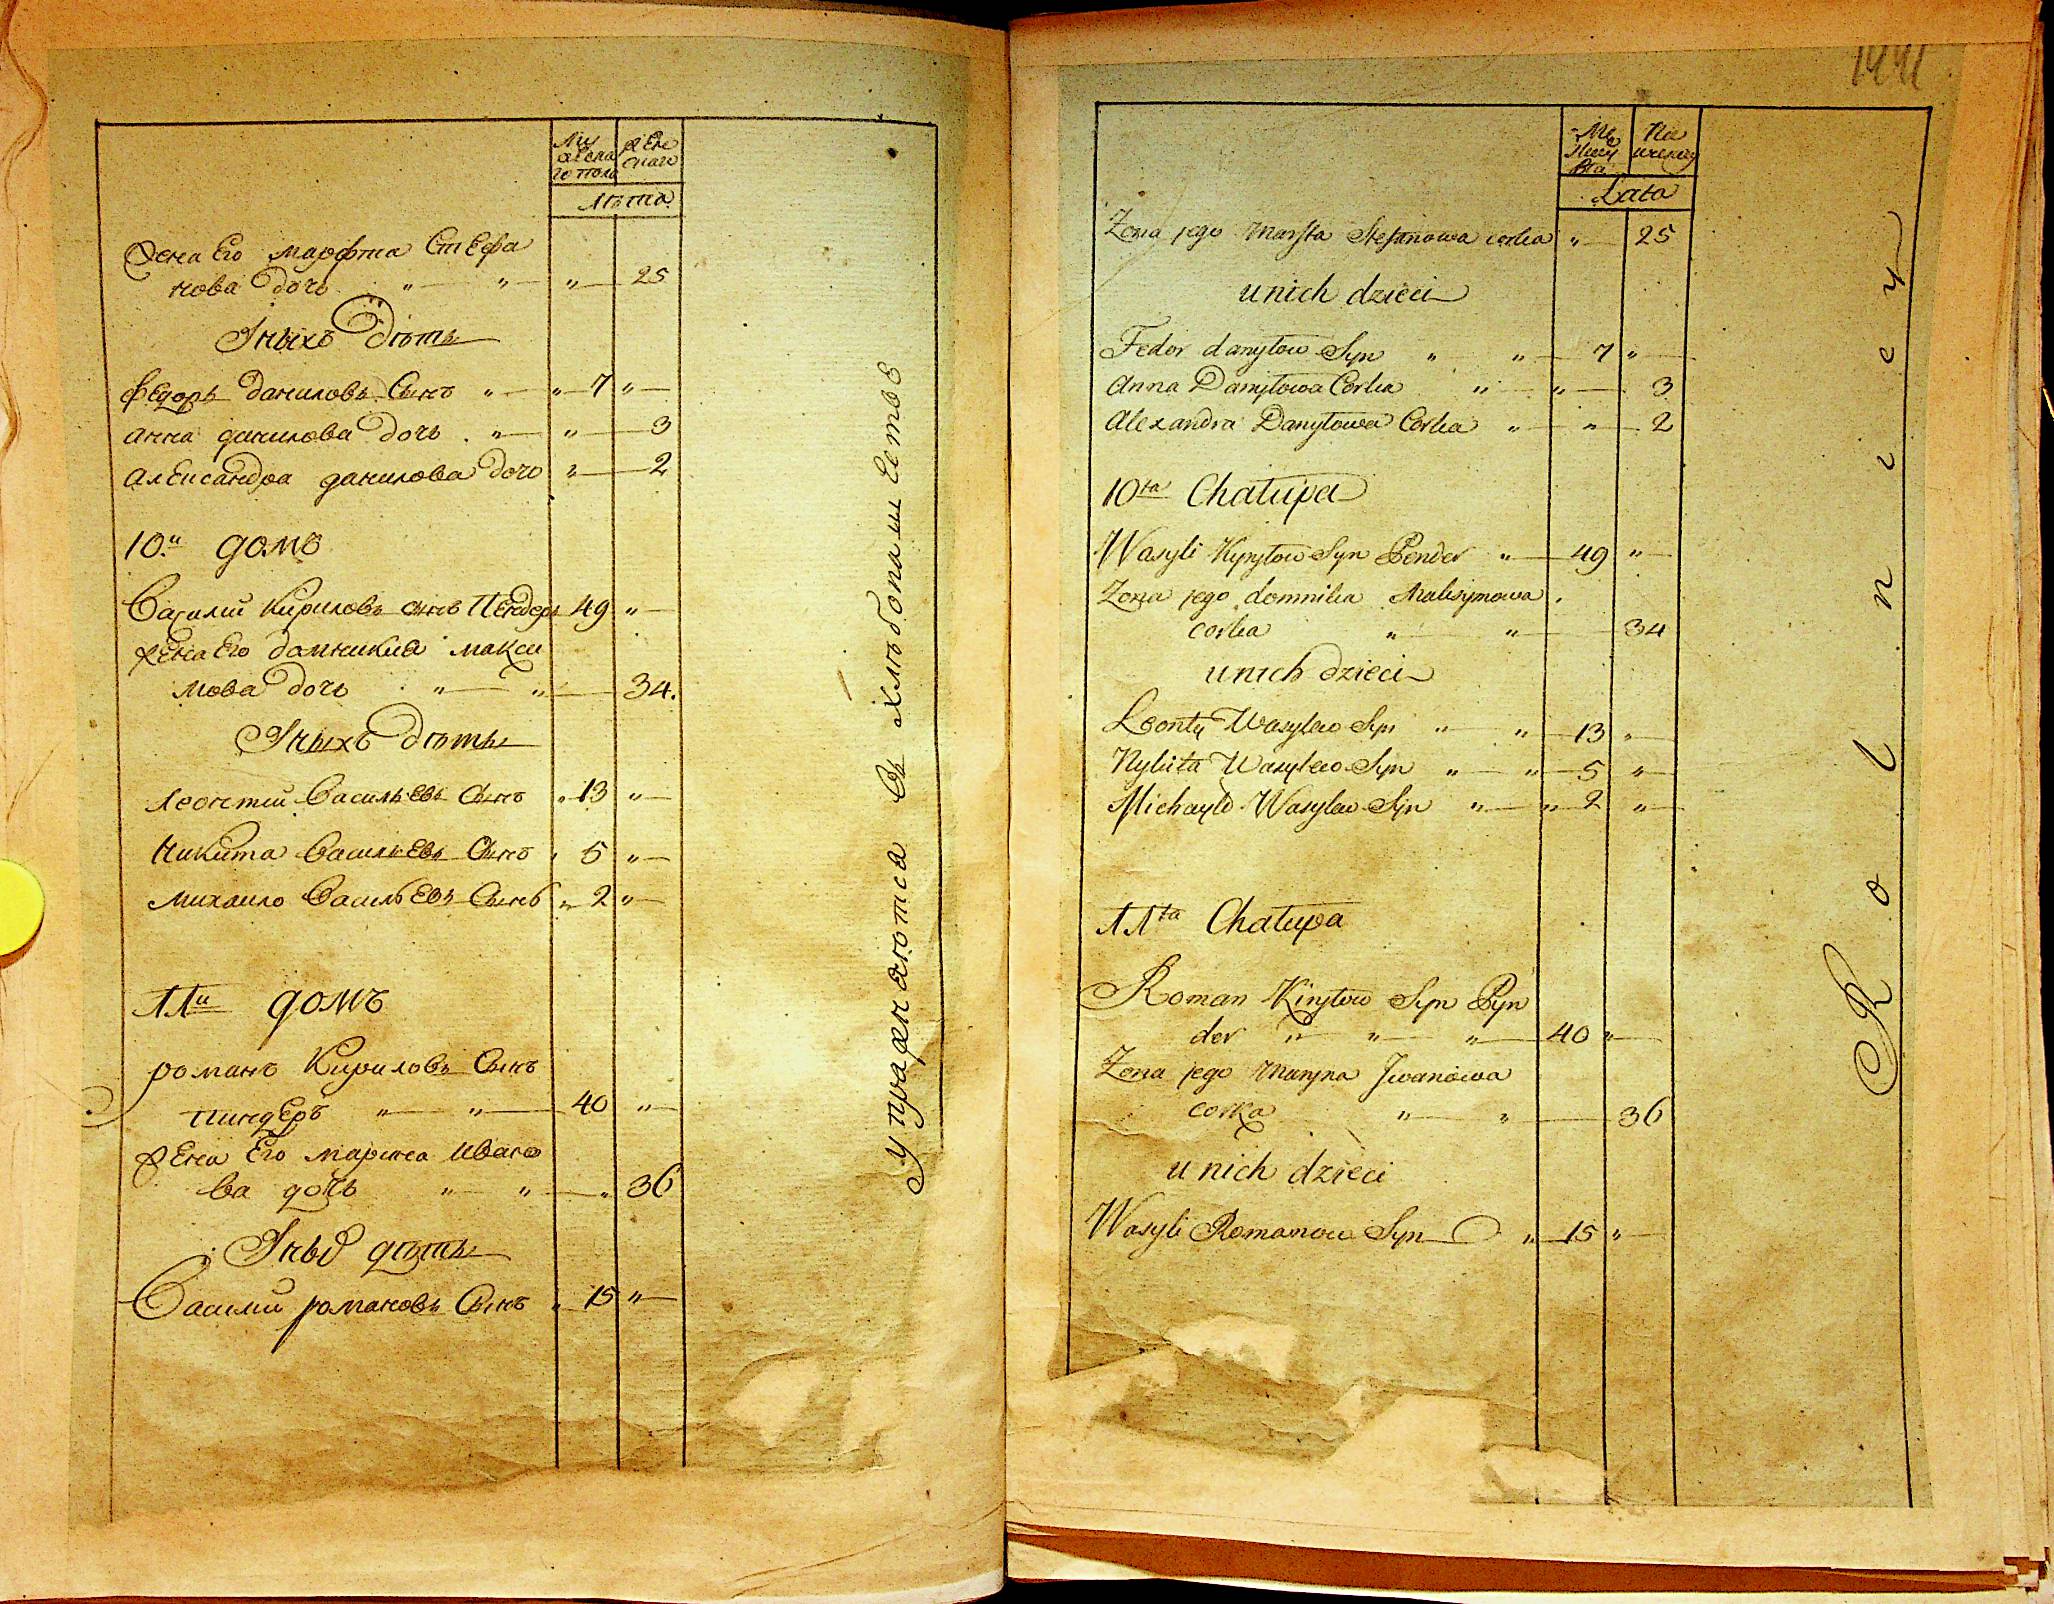 Му
жеска
го пола
жен
скаго
лѣта
Жена Его марфта Стефа
нова дочь " " " 25
Уныхъ дѣти
федоръ даниловъ Сынъ " " 7 "
анна данилова дочь " " 3
алеѯандра данилова дочь " 2
10.й домъ
Василий Кириловъ сынъ Пендеръ 49 "
Жена Его домникиа макси
мова дочь " " 34.
Уныхъ дѣти
леонтий Васильевъ Сынъ " 13 "
никита Васильевъ Сынъ " 5 "
михаило Васильевъ Сынъ " 2 "
11й домъ
романъ Кириловъ Сынъ
пиндеръ " " 40 "
Жена Его марина Ивано
ва дочь " " " 36
Уныхъ дѣти
Василий романовъ Сынъ " 15 "
упражнаютса Въ хлѣбопашестве
Lata
Zona jego Marfta Stefanowa corka " 25
u nich dzieci
Fedor danyłow Syn " " 7 "
anna Danyłowa Corka " " 3
alexandra Danyłowa Corka " " 2
10ta Chałupa
Wasyli Kyryłow Syn Pender " 49 "
Zona jego domnikia Maksymowa
corka " " 34
u nich dzieci
Leonty Wasylew Syn " " 13 "
Nykita Wasylew Syn " " 5 "
Michayło Wasylew Syn " " 2 "
11ta Chałupa
Roman Kiryłow Syn Pyn
der " " " 40 "
Zona jego Maryna Jwanowa
corka " " 36
u nich dzieci
Wasyli Romanow Syn " 15 "
Rolnicy